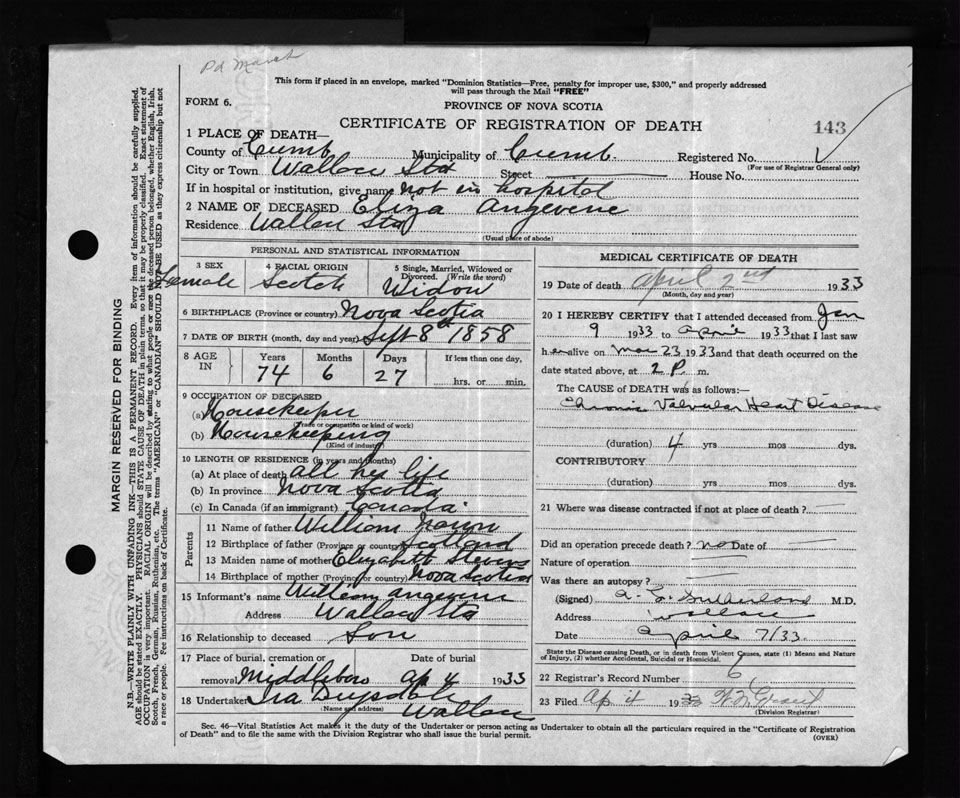 Pd March
This form if placed in an envelope, marked "Dominion Statistics—Free, penalty for improper use, $300," and properly addressed
will pass through the Mail "FREE"
FORM 6.
PROVINCE OF NOVA SCOTIA
CERTIFICATE OF REGISTRATION OF DEATH
143
1 PLACE OF DEATH—
County of Cumb. Municipality of Cumb. Registered No.
(For use of Registrar General only)
City or Town Wallace Sta Street House No.
If in hospital or institution, give name not in hospital
2 NAME OF DECEASED Eliza Angevene
Residence Wallace Sta
(Usual place of abode)
PERSONAL AND STATISTICAL INFORMATION
3 SEX Female
4 RACIAL ORIGIN Scotch
5 Single, Married, Widowed or Divorced. (Write the word) Widow
6 BIRTHPLACE (Province or country) Nova Scotia
7 DATE OF BIRTH (month, day and year) Sept 8th 1858
8 AGE IN Years Months Days If less than one day,
74 6 27 hrs. or min.
9 OCCUPATION OF DECEASED
(a) Housekeeper
(Trade or occupation or kind of work)
(b) Housekeeping
(Kind of industry)
10 LENGTH OF RESIDENCE (in years and months)
(a) At place of death all her life
(b) In province Nova Scotia
(c) In Canada (if an immigrant) Canada
Parents
11 Name of father William
12 Birthplace of father (Province or country) Scotland
13 Maiden name of mother Elizabeth Stevens
14 Birthplace of mother (Province or country) Nova Scotia
15 Informant's name William Angevene
Address Wallace Sta
16 Relationship to deceased Son
17 Place of burial, cremation or removal Middleboro
Date of burial Ap 4 1933
18 Undertaker Ira Drysdale
(Name and address) Wallace
MEDICAL CERTIFICATE OF DEATH
19 Date of death April 2nd 1933
(Month, day and year)
20 I HEREBY CERTIFY that I attended deceased from Jan
9 1933 to April 1933 that I last saw
her alive on Mar 23 1933 and that death occurred on
date stated above, at 2 P. m.
The CAUSE OF DEATH was as follows:—
Chronic Valvular Heart Disease
(duration) 4 yrs mos dys.
CONTRIBUTORY
(duration) yrs. mos. dys.
21 Where was disease contracted if not at place of death?
Did an operation precede death? no Date of
Nature of operation
Was there an autopsy?
(Signed) Sutherland M.D.
Address Wallace
Date April 7/33.
State the Disease causing Death, or in death from Violent Causes, state (1) Means and Nature
of Injury, (2) whether Accidental, Suicidal or Homicidal.
22 Registrar's Record Number 6
23 Filed Ap 4 1933 Grant
(Division Registrar)
Sec. 46—Vital Statistics Act makes it the duty of the Undertaker or person acting as Undertaker to obtain all the particulars required in the "Certificate of Registration
of Death" and to file the same with the Division Registrar who shall issue the burial permit.
(OVER)
MARGIN RESERVED FOR BINDING
N.B.—WRITE PLAINLY WITH UNFADING INK—THIS IS A PERMANENT RECORD. Every item of information should be carefully supplied.
AGE should be stated EXACTLY. PHYSICIANS should STATE CAUSE OF DEATH in plain terms, so that it may be properly classified. Exact statement of
OCCUPATION is very important. RACIAL ORIGIN will be described by stating to what people or race the deceased person belonged, whether English, Irish,
Scotch, French, German, Russian, Ruthenian, etc. The terms "AMERICAN" or "CANADIAN" SHOULD NOT BE USED as they express citizenship but not
a race or people. See instructions on back of Certificate.